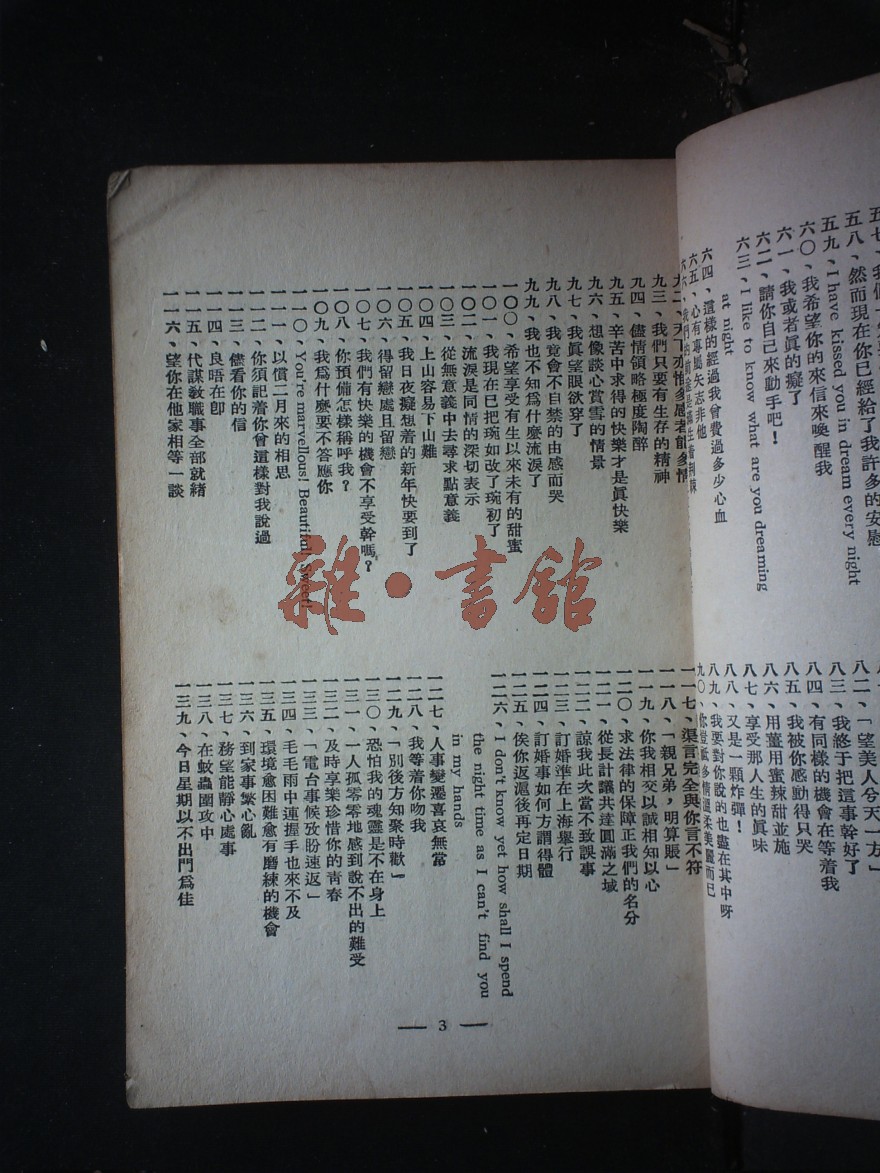 五八、然而現在你已經給了我許多的安慰
五九、I have kissed you in dream every night
六〇、我希望你的來信來喚醒我
六一、我或者眞的癡了
六二、請你自己來動手吧！
六三、I like to know what are you dreaming
at night
六四、這樣的經過我曾費過多少心血
六五、心有專屬矢志非他
八二、「望美人兮天一方」
八三、我終于把這事幹好了
八四、有同樣的機會在等着我
八五、我被你感動得只哭
八六、用薑用蜜辣甜並施
八七、享受那人生的眞味
八八、又是一顆炸彈！
八九、我要對你說的也盡在其中呀
九〇、你
多情溫柔美麗而已
九三、我們只要有生存的精神
九四、儘情領略極度陶醉
九五、辛苦中求得的快樂才是眞快樂
九六、想像談心賞雪的情景
九七、我眞望眼欲穿了
九八、我竟會不自禁的由感而哭
九九、我也不知爲什麼流淚了
一〇〇、希望享受有生以來未有的甜蜜
一〇一、我現在已把琬如改了琬初了
一〇二、流淚是同情的深切表示
一〇三、從無意義中去尋求點意義
一〇四、上山容易下山難
一〇五、我日夜癡想着的新年快要到了
一〇六、得留戀處且留戀
一〇七、我們有快樂的機會不享受幹嗎？
一〇八、你預備怎樣稱呼我？
一〇九、我爲什麼要不答應你
一一〇、You're marvellous! Beautiful! Sweet!
一一一、以償二月來的相思
一一二、你須記着你曾這樣對我說過
一一三、儘看你的信
一一四、良晤在卽
一一五、代謀敎職事全部就緒
一一六、望你在他家相等一談
一一七、渠言完全與你言不符
一一八、「親兄弟，明算賬」
一一九、你我相交以誠相知以心
一二〇、求法律的保障正我們的名分
一二一、從長計議共達圓滿之域
一二二、諒我此次當不致誤事
一二三、訂婚準在上海舉行
一二四、訂婚事如何方謂得體
一二五、俟你返滬後再定日期
一二六、I don't know yet how shall I spend
the night time as I can't find you
in my hands
一二七、人事變遷喜哀無常
一二八、我等着你吻我
一二九、「別後方知聚時歡」
一三〇、恐怕我的魂靈是不在身上
一三一、一人孤零零地感到說不出的難受
一三二、及時享樂珍惜你的青春
一三三、「電台事候攷盼速返」
一三四、毛毛雨中連握手也來不及
一三五、環境愈困難愈有磨練的機會
一三六、到家事繁心亂
一三七、務望能靜心處事
一三八、在蚊蟲圍攻中
一三九、今日星期以不出門爲佳
— 3 —
雜·書館